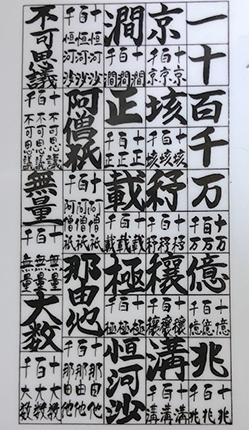 一
十
百
千
万
十万
百万
千万
億
十億
百億
千億
兆
十兆
百兆
千兆
京
十京
百京
千京
垓
十垓
百垓
千垓
𥝱
十𥝱
百𥝱
千𥝱
穣
十穣
百穣
千穣
溝
十溝
百溝
千溝
澗
十澗
百澗
千澗
正
十正
百正
千正
載
十載
百載
千載
極
十極
百極
千極
恒河沙
十恒河沙
百恒河沙
千恒河沙
阿僧祇
十阿僧祇
百阿僧祇
千阿僧祇
那由他
十那由他
百那由他
千那由他
不可思議
十不可思議
百不可思議
千不可思議
無量
十無量
百無量
千無量
大数
十大数
百大数
千大数